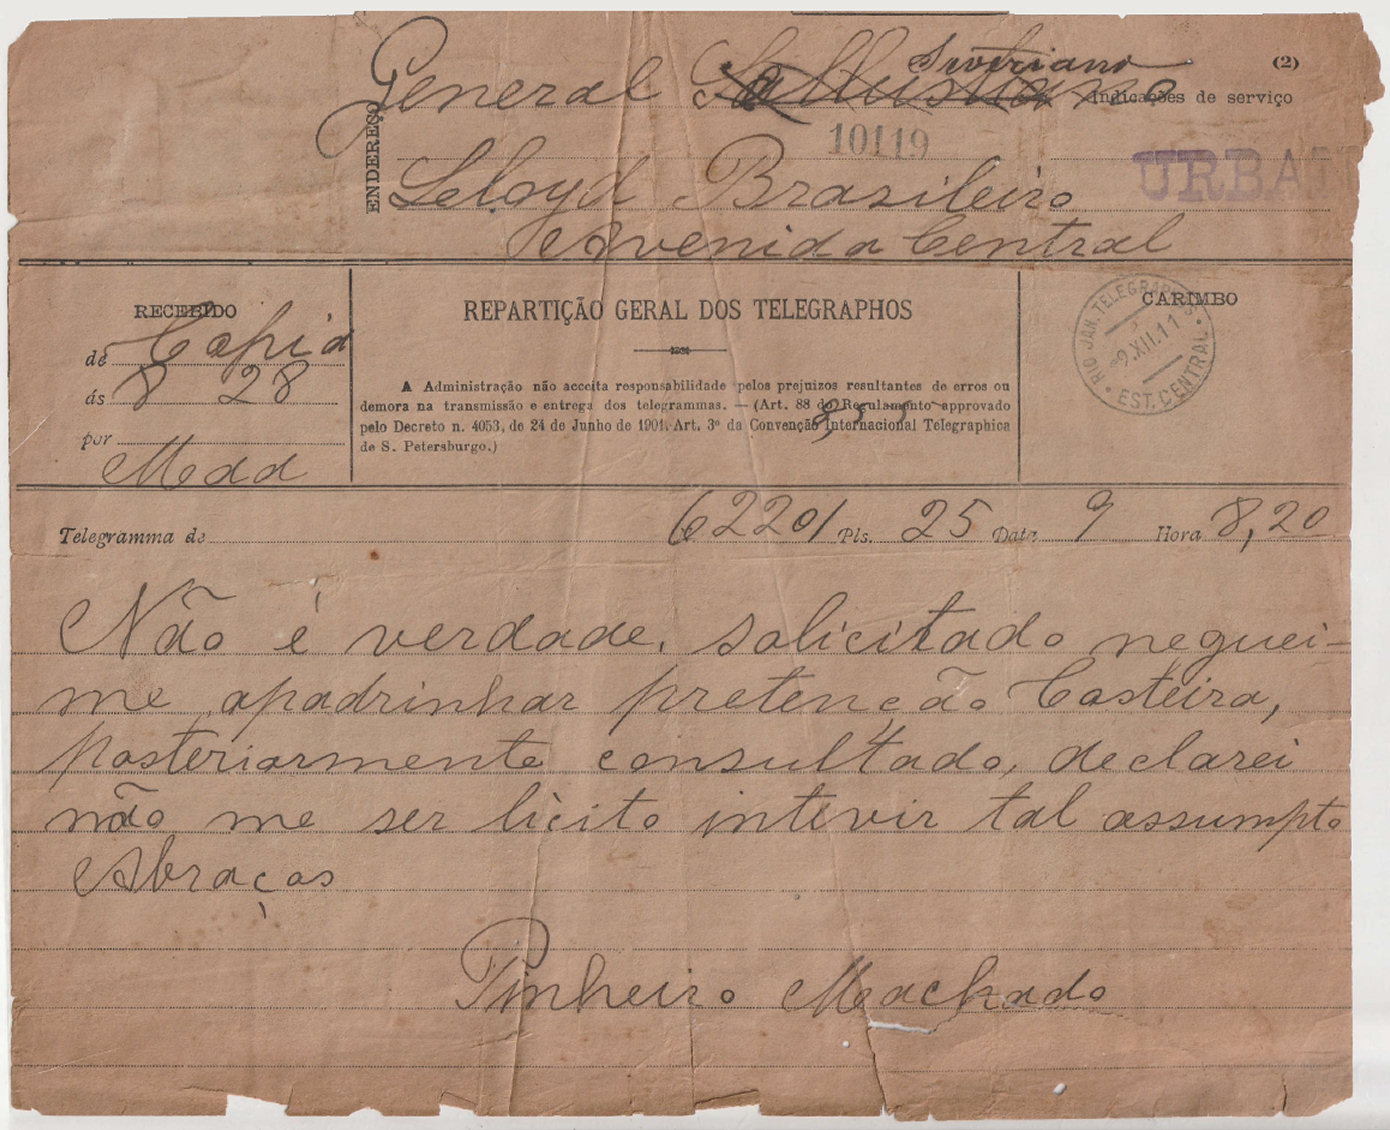 General Sallustiano Severiano
(2)
Indicações de serviço
ENDEREÇO
10119
Leloyd Brasileiro
URBA
Avenida Central
RECEBIDO
de Capid
ás 8 28
por
Madd
REPARTIÇÃO GERAL DOS TELEGRAPHOS
A Administração não acceita responsabilidade pelos prejuizos resultantes de erros ou
demora na transmissão e entrega dos telegrammas. — (Art. 88 do Regulamento approvado
pelo Decreto n. 4053, de 24 de Junho de 1901. Art. 3º da Convenção Internacional Telegraphica
de S. Petersburgo.)
CARIMBO
RIO JAN. TELEGRAPHOS
9.XII.11
EST. CENTRAL
Telegramma de 62201 Pls. 25 Data 9 Hora 8,20
Não é verdade. solicitado neguei-
me apadrinhar pretenção Costeira,
posteriormente consultado, declarei
não me ser licito intevir tal assumpto
Abraços
Pinheiro Machado